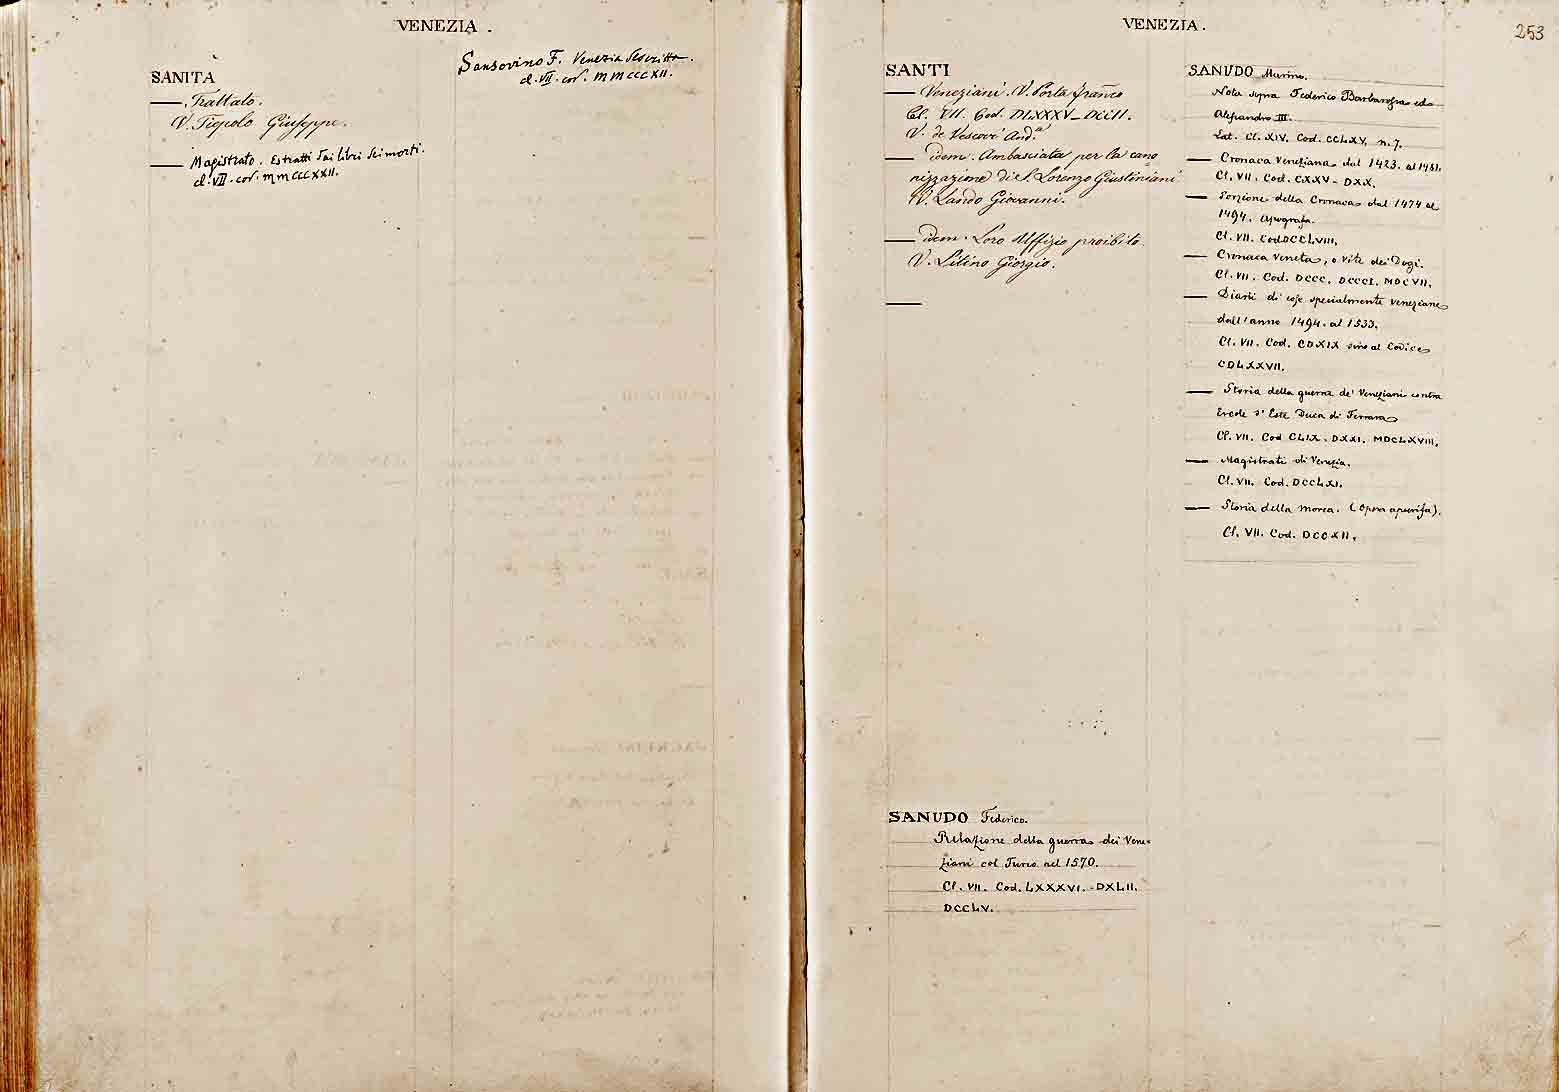 VENEZIA.
SANITA
— Trattato.
V. Tiepolo Giuseppe.
— Magistrato. Estratti dai libri dei morti.
cl. VII. cod. MMCCCXXII.
Sansovino F. Venezia descritta.
cl. VII. cod. MMCCCXII.
VENEZIA.
253
SANTI
— Veneziani. V. Porta franco
Cl. VII. Cod. DLXXXV_
V. de Vescovi And.
— idem. Ambasciata per la cano
nizzazione di S. Lorenzo Giustiniani
V. Lando Giovanni.
— idem. Loro Uffizio proibito.
V. Lilino Giorgio.
—
SANUDO Federico.
Relazione della guerra dei Vene-
ziani col Turco nel 1570.
Cl. VII. Cod. LXXXVI. - DXLII.
DCCLV.
SANUDO Marino.
Nota sopra Federico Barbarossa ed
Alessandro III.
Lat. Cl. XIV. Cod. CCLXV. n. 7.
— Cronaca Veneziana dal 1423. al 1451.
Cl. VII. Cod. CXXV - DXX.
— Porzione della Cronaca dal 1474 al
1494. apografa.
Cl. VII. Cod DCCLVIII.
— Cronaca Veneta, o Vite dei Dogi.
Cl. VII. Cod. DCCC. DCCCI. MDCVII.
— Diarii di cose specialmente veneziane
dall'anno 1494. al 1533.
Cl. VII. Cod. CDXIX sino al Codice
CDLXXVII.
— Storia della guerra de' Veneziani contra
Ercole d'Este Duca di Ferrara
Cl. VII. Cod CLIX. DXXI. MDCLXVIII.
— Magistrati di Venezia.
Cl. VII. Cod. DCCLXI.
— Storia della Morea. (Opera apocrifa).
Cl. VII. Cod. DCCXII.